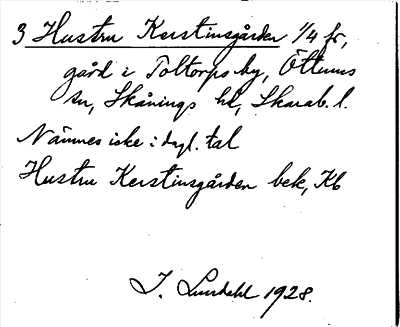 3 Hustru Kerstinsgården 1/4 fr,
gård i Toltorps by, Öttums
sn, Skånings hd, Skarab. l.
Nämnes icke i dagl. tal
Hustru Kerstinsgården bek, Kb
J. Lundahl 1928.